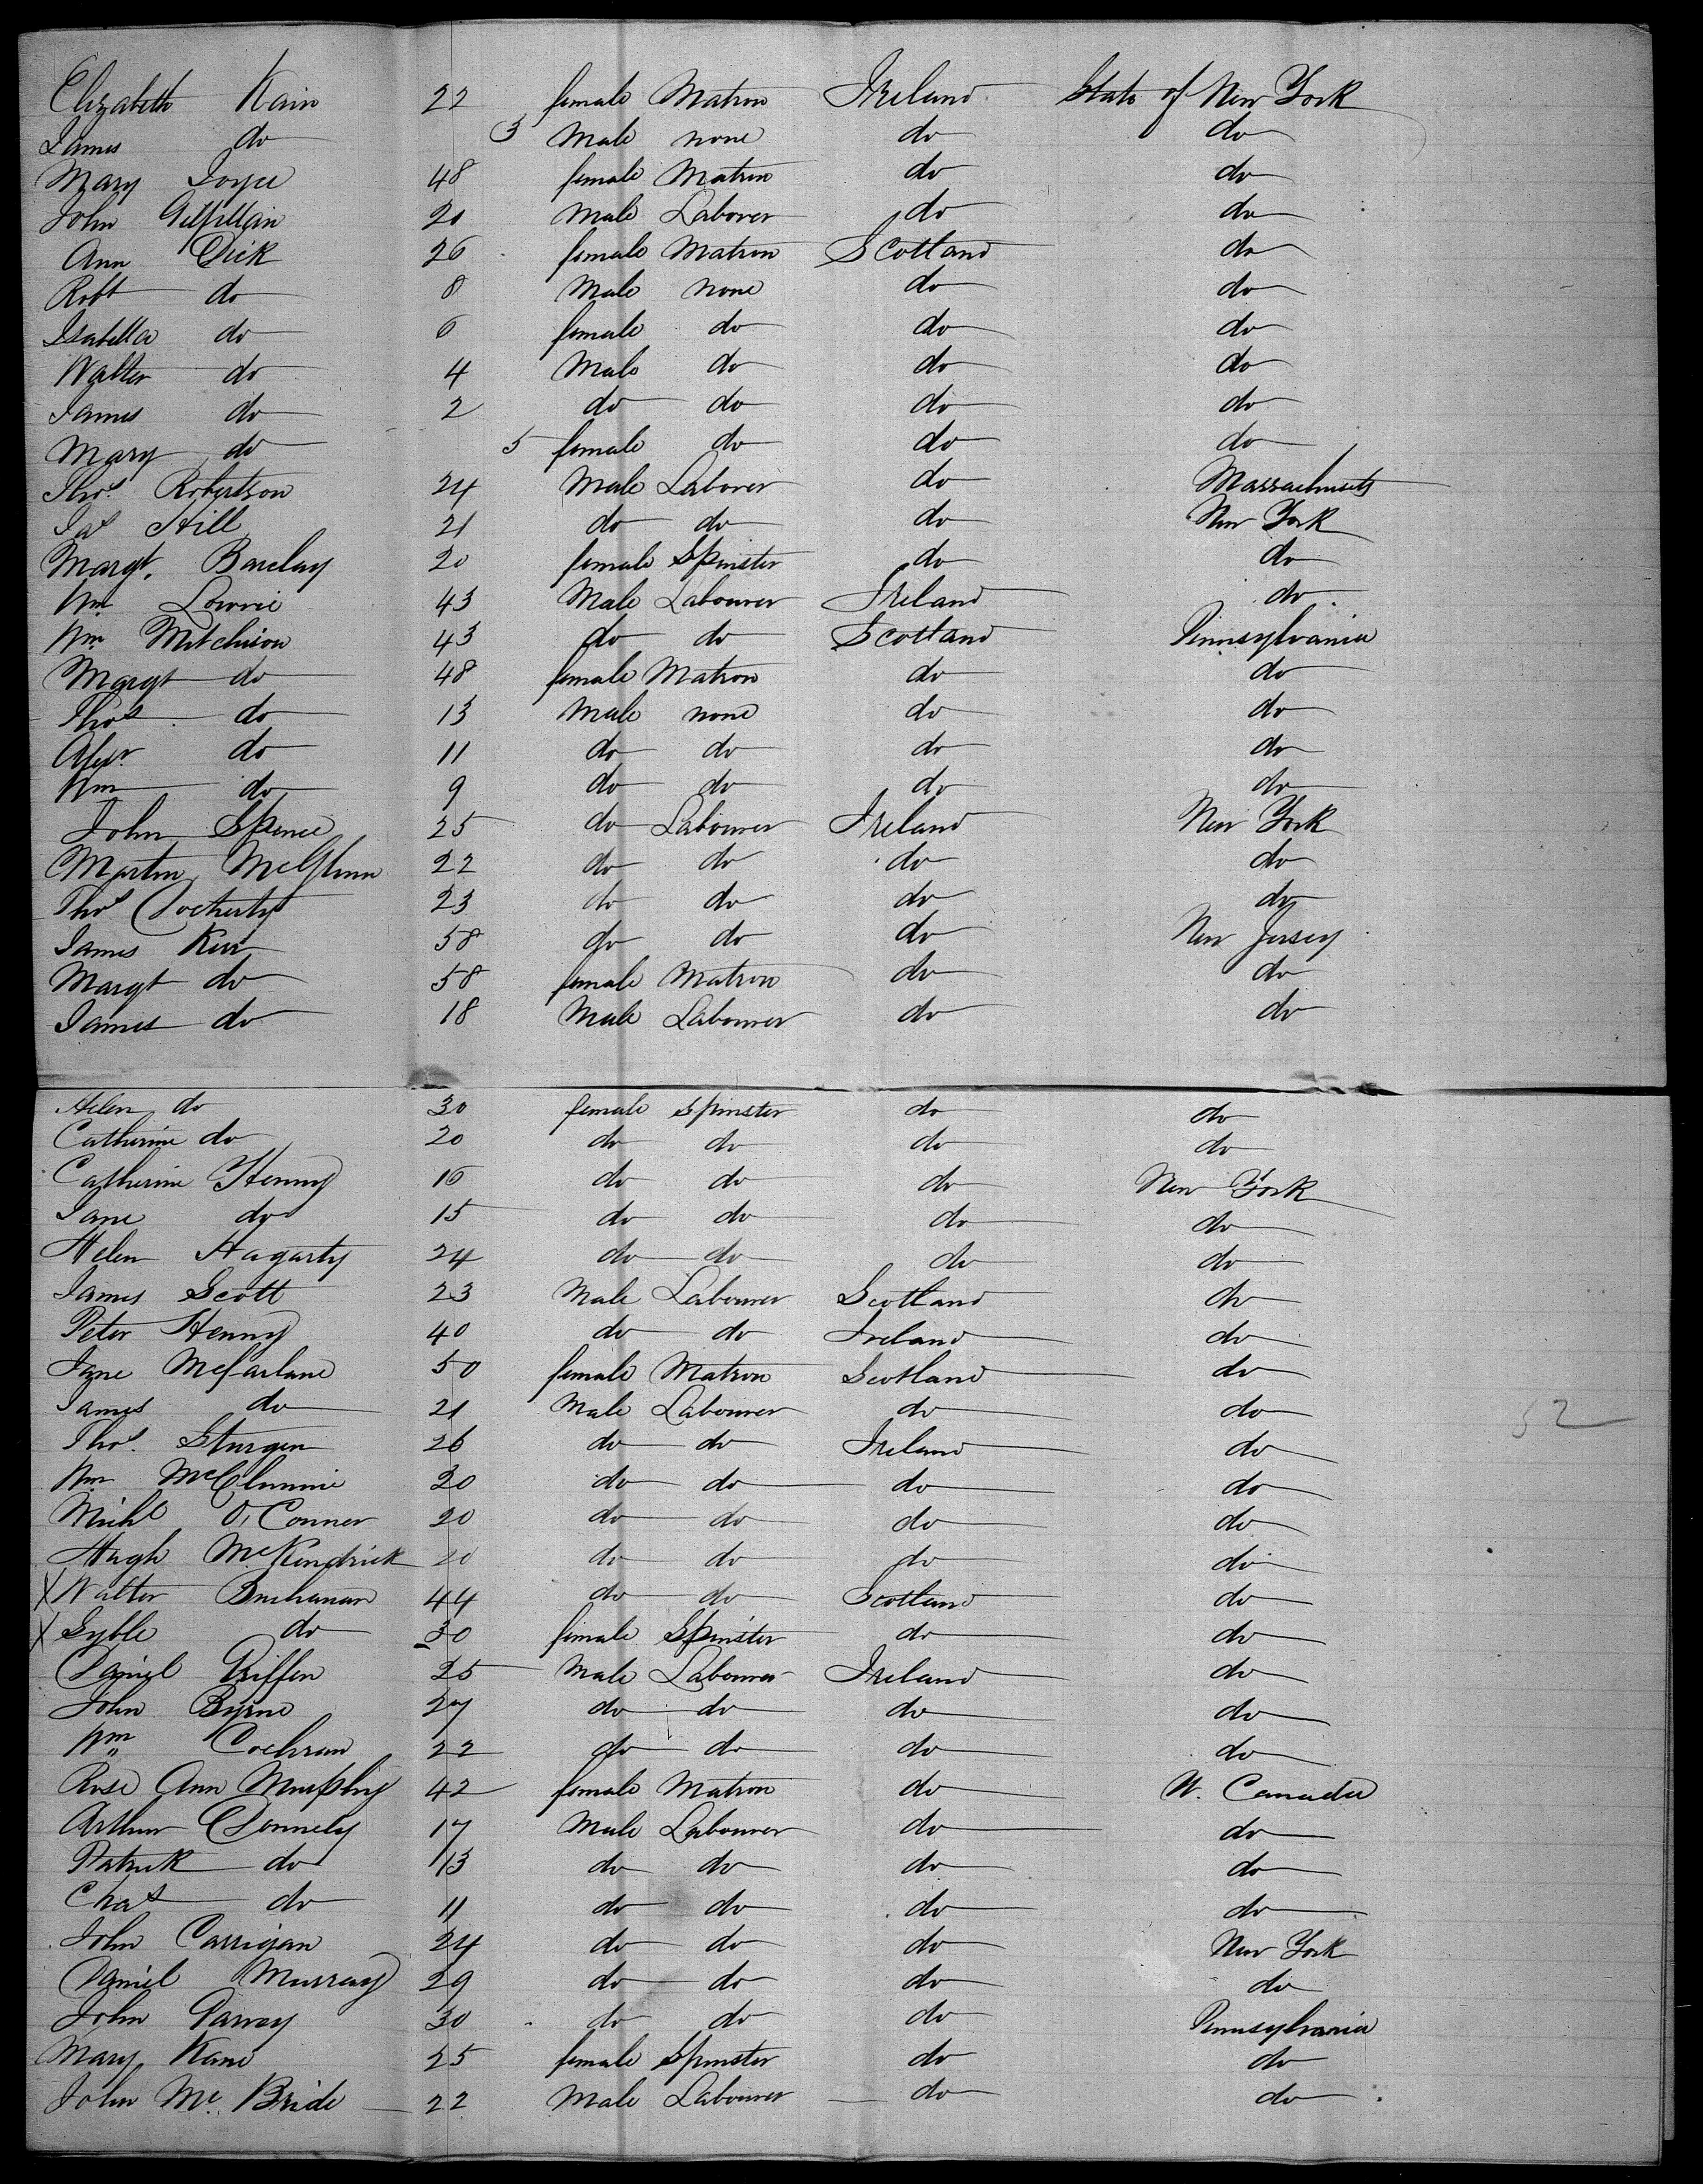 Elizabeth Kain 22 female Matron Ireland State of New York
James do 3 Male none do do
Mary Joyce 48 female Matron do do
John Gilfillan 20 Male Laborer do do
Ann Dick 26 female Matron Scotland do
Robt do 8 Male none do do
Isabella do 6 female do do do
Walter do 4 Male do do do
James do 2 do do do do
Mary do 5 female do do do
Thos Robertson 24 Male Laborer do Massachusets
Jas Hill 21 do do do New York
Margt. Barclay 20 female Spinster do do
Wm Lowrie 43 Male Labourer Ireland do
Wm Mitchison 43 do do Scotland Pennsylvania
Margt do 48 female Matron do do
Thos do 13 Male none do do
Alexr. do 11 do do do do
Wm do 9 do do do do
John Spence 25 do Labourer Ireland New York
Martin McGlinn 22 do do do do
Thos Docherty 23 do do do do
James Kerr 58 do do do New Jersey
Margt do 58 female Matron do do
James do 18 Male Labourer do do
Helen do 30 female Spinster do do
Catherine do 20 do do do do
Catherine Henny 16 do do do New York
Jane do 15 do do do do
Helen Hagarty 24 do do do do
James Scott 23 Male Labourer Scotland do
Peter Henny 40 do do Ireland do
Jane McFarlane 50 female Matron Scotland do
James do 21 Male Labourer do do
52
Thos. Sturgen 26 do do Ireland do
Wm McClunnie 20 do do do do
Michl O'Conner 20 do do do do
Hugh McKendrick 20 do do do do
X Walter Buchanan 44 do do Scotland do
X Syble do 30 female Spinster do do
Daniel Griffen 25 Male Labourer Ireland do
John Byrne 27 do do do do
Wm Cochran 22 do do do do
Rose Ann Murphy 42 female Matron do W. Canada
Arthur Donnely 17 Male Labourer do do
Patrick do 13 do do do do
Chas do 11 do do do do
John Carrigan 24 do do do New York
Daniel Murray 29 do do do do
John Garvey 30 do do do Pennsylvania
Mary Kane 25 female Spinster do do
John Mc. Bride 22 Male Labourer do do